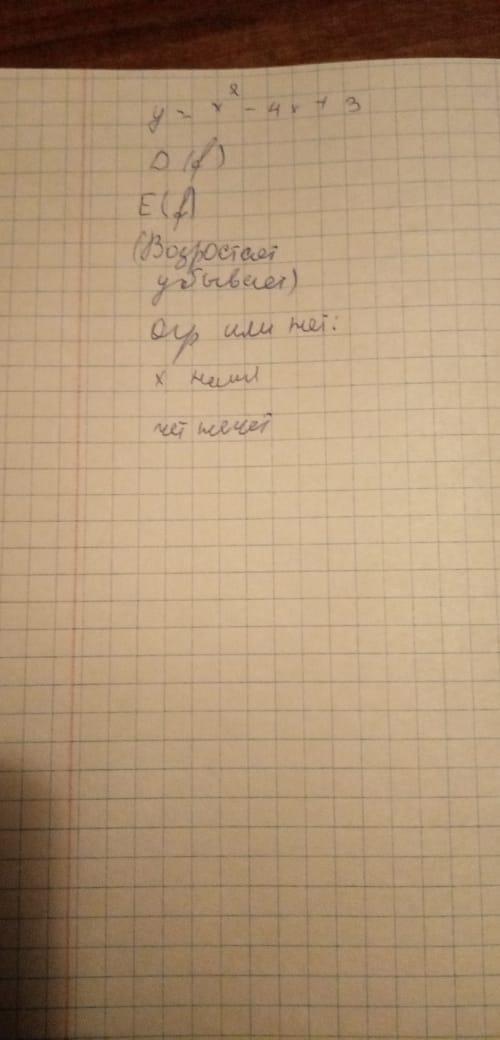 y = x² - 4x + 3
D(f)
E(f)
(Возростает
убывает)
Огр или нет:
x
чет нечет